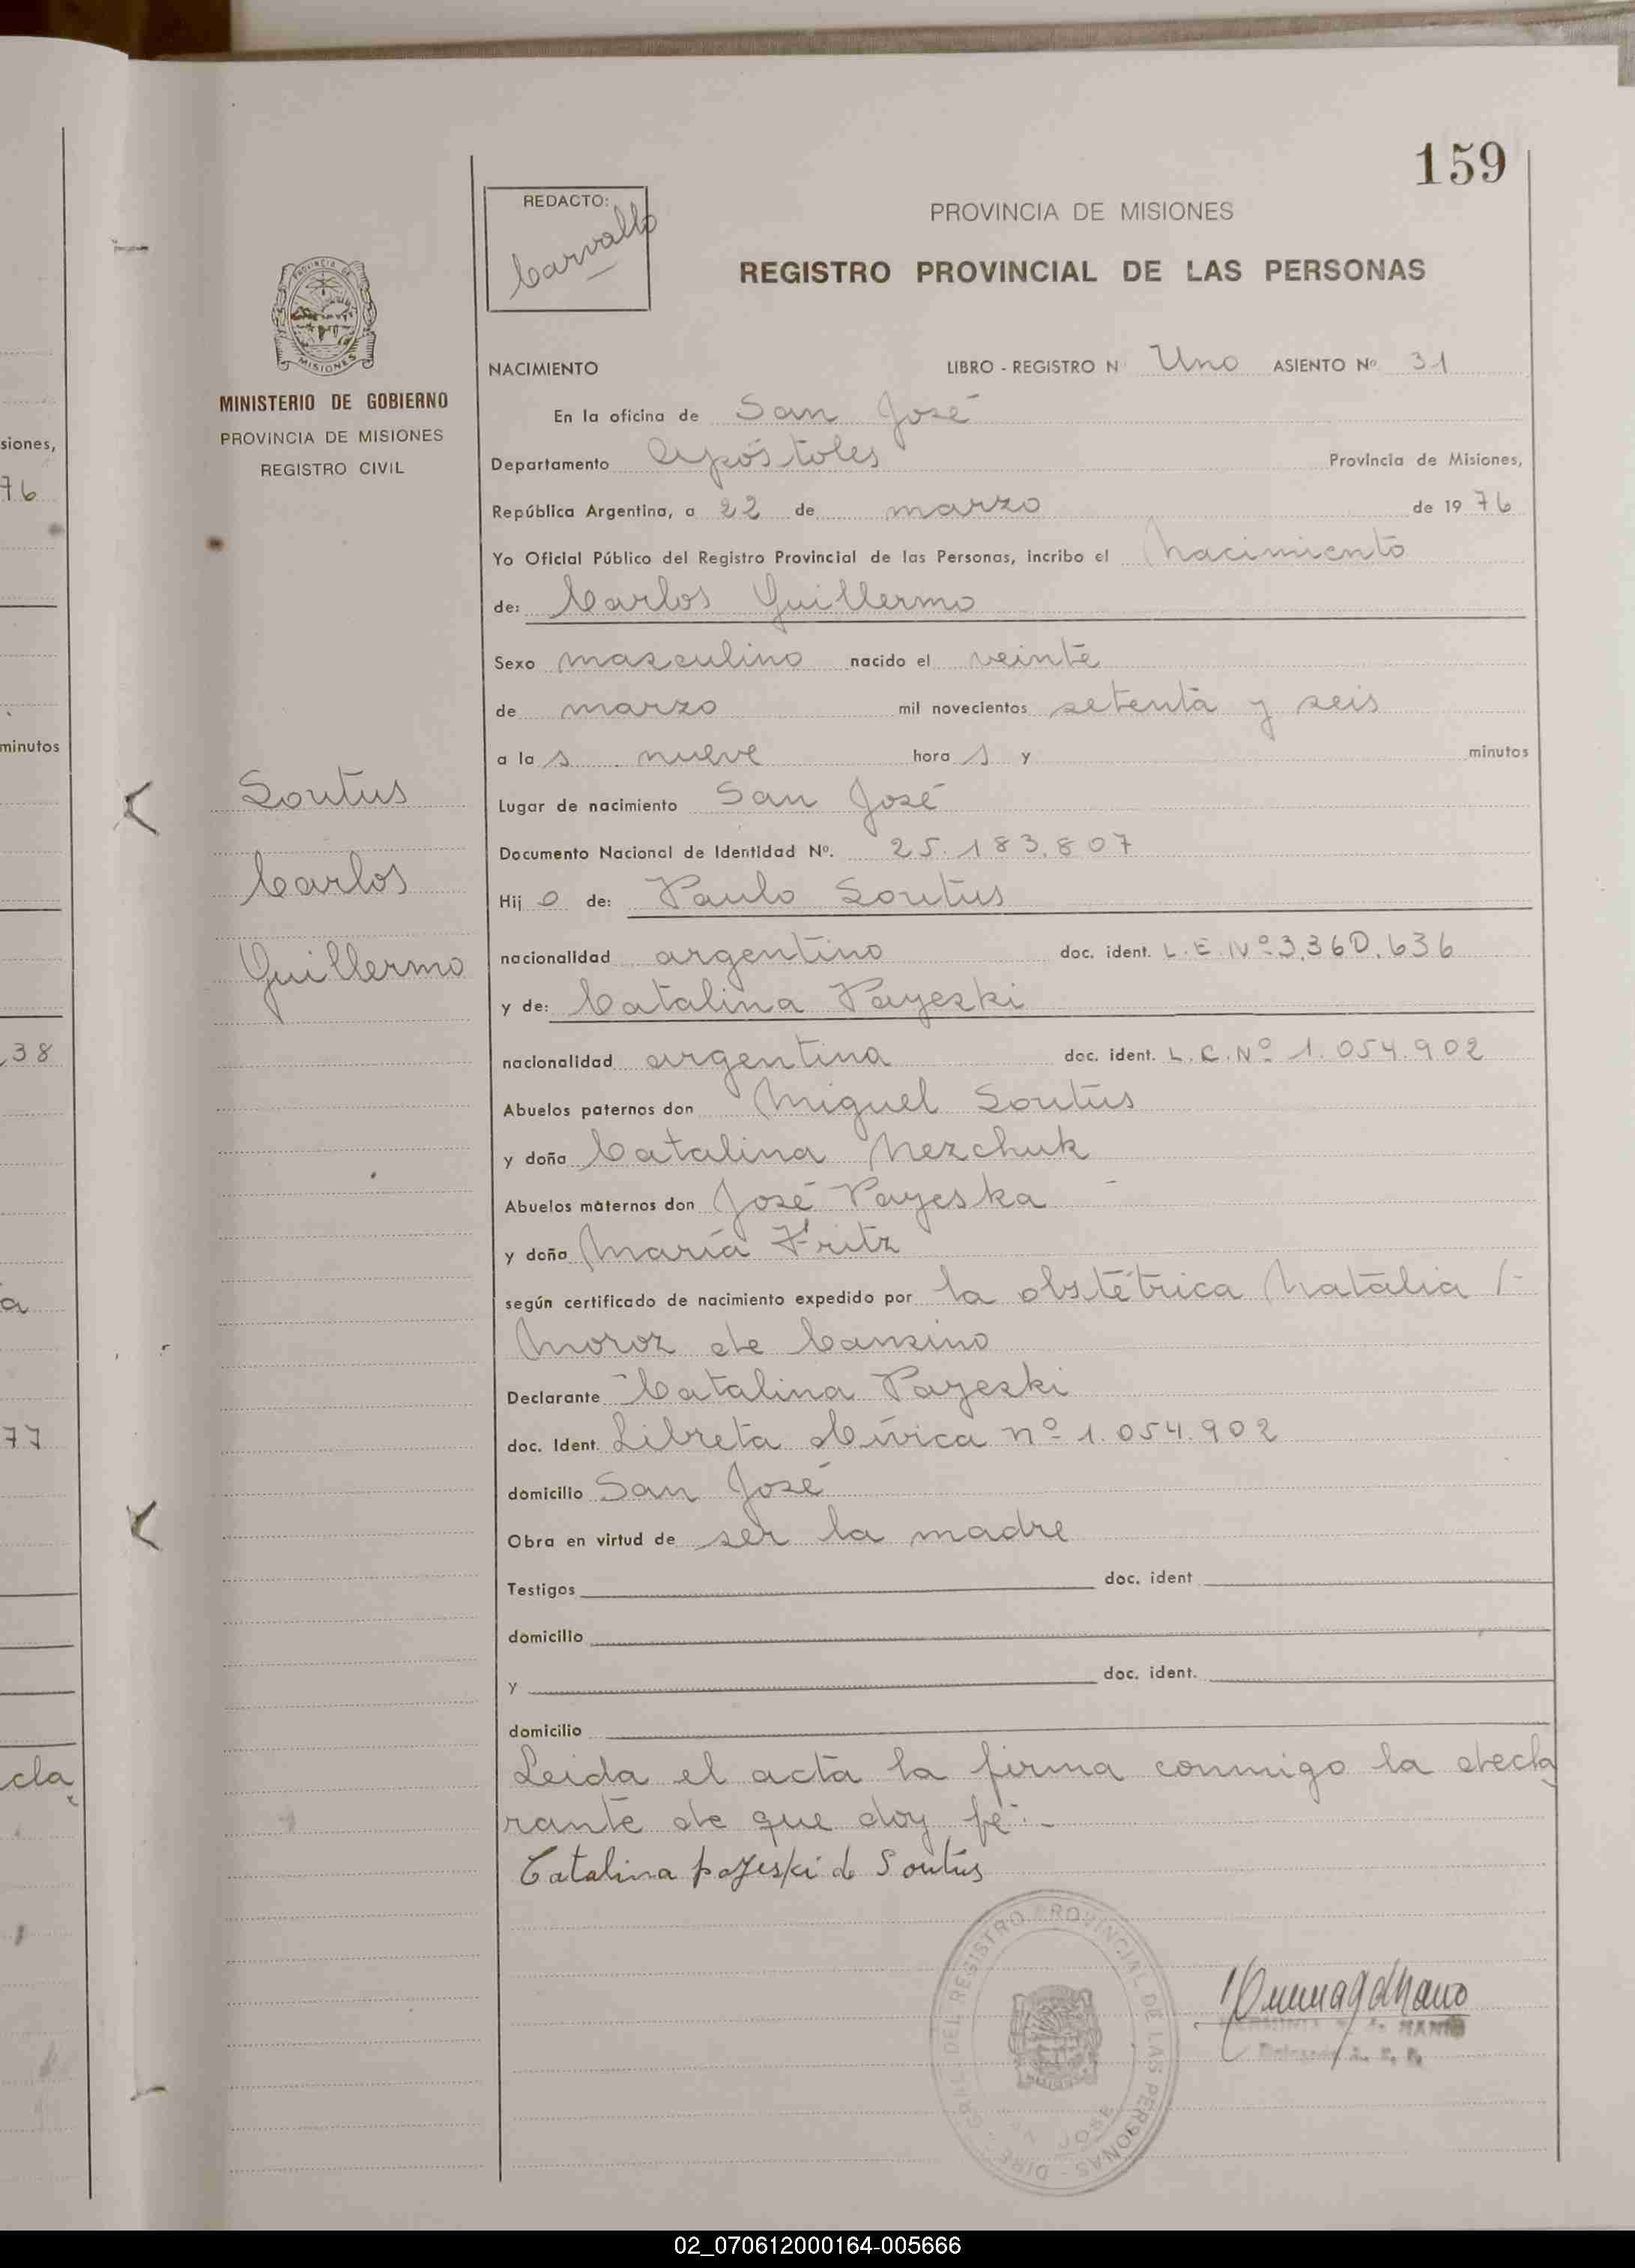 159
REDACTO:
Carvallo
PROVINCIA DE MISIONES
REGISTRO PROVINCIAL DE LAS PERSONAS
PROVINCIA DE
MISIONES
MINISTERIO DE GOBIERNO
PROVINCIA DE MISIONES
REGISTRO CIVIL
NACIMIENTO LIBRO - REGISTRO N° Uno ASIENTO Nº 31
En la oficina de San José
Departamento Apóstoles Provincia de Misiones,
República Argentina, a 22 de marzo de 1976
Yo Oficial Público del Registro Provincial de las Personas, incribo el Nacimiento
de: Carlos Guillermo
Sexo masculino nacido el veinte
de marzo mil novecientos setenta y seis
a la s nueve hora s y minutos
Lugar de nacimiento San José
Documento Nacional de Identidad Nº. 25.183.807
Hij o de: Paulo Soutus
nacionalidad argentino doc. ident. L.E. Nº 3.360.636
y de: Catalina Payeski
nacionalidad argentina doc. ident. L.C. Nº 1.054.902
Abuelos paternos don Miguel Soutus
y doña Catalina Nezchuk
Abuelos maternos don José Payeska
y doña María Fritz
según certificado de nacimiento expedido por la obstétrica Natalia
Moroz de Cansino
Declarante Catalina Payeski
doc. Ident. Libreta Cívica nº 1.054.902
domicilio San José
Obra en virtud de ser la madre
Testigos doc. ident
domicilio
y doc. ident.
domicilio
Leida el acta la firma conmigo la decla
rante de que doy fe.-
Catalina payeski de Soutus
Soutus
Carlos
Guillermo
DIRE - GRAL DEL REGISTRO PROVINCIAL DE LAS PERSONAS
JOSE
MANIO
siones,
76
minutos
38
a
77
cla
02_070612000164-005666